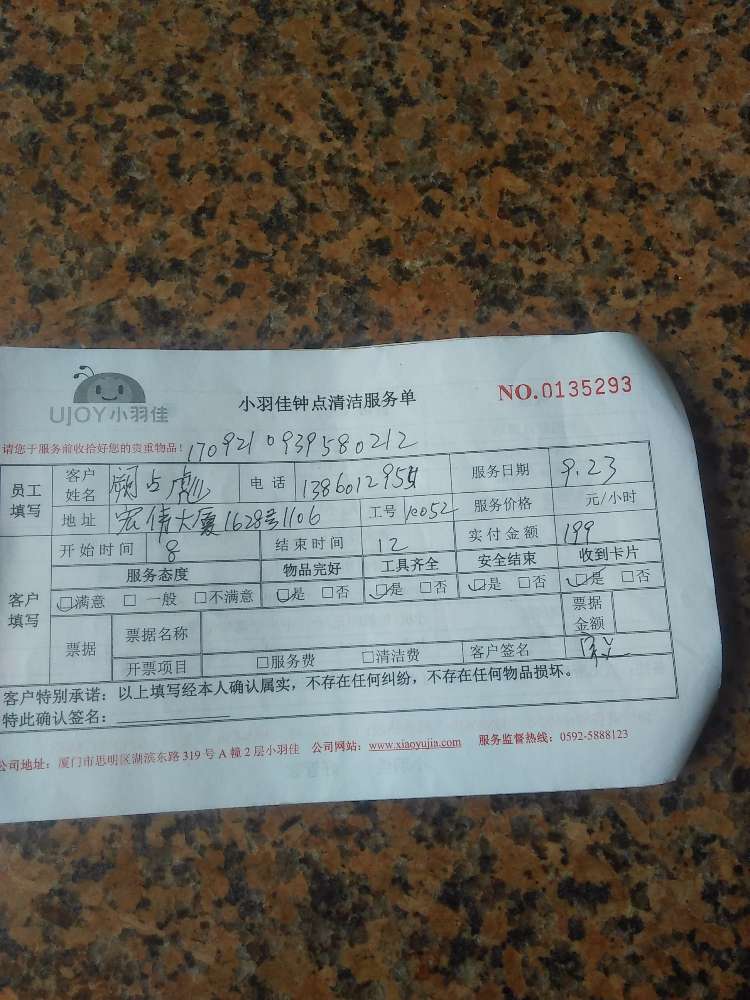 UJOY小羽佳
小羽佳钟点清洁服务单
NO.0135293
请您于服务前收拾好您的贵重物品!
170921 0939580212
员工填写 客户姓名 阙占彪 电话 服务日期 9.23
地址 宏伟大厦1628号1106 工号 服务价格 元/小时
开始时间 8 结束时间 12 实付金额 199
客户填写 服务态度 物品完好 工具齐全 安全结束 收到卡片
□满意 □一般 □不满意 □是 □否 □是 □否 □是 □否 □是 □否
票据 票据名称 票据金额
开票项目 □服务费 □清洁费 客户签名
客户特别承诺:以上填写经本人确认属实,不存在任何纠纷,不存在任何物品损坏。
特此确认签名:
公司地址:厦门市思明区湖滨东路319号A幢2层小羽佳 公司网站:www.xiaoyujia.com 服务监督热线:0592-5888123